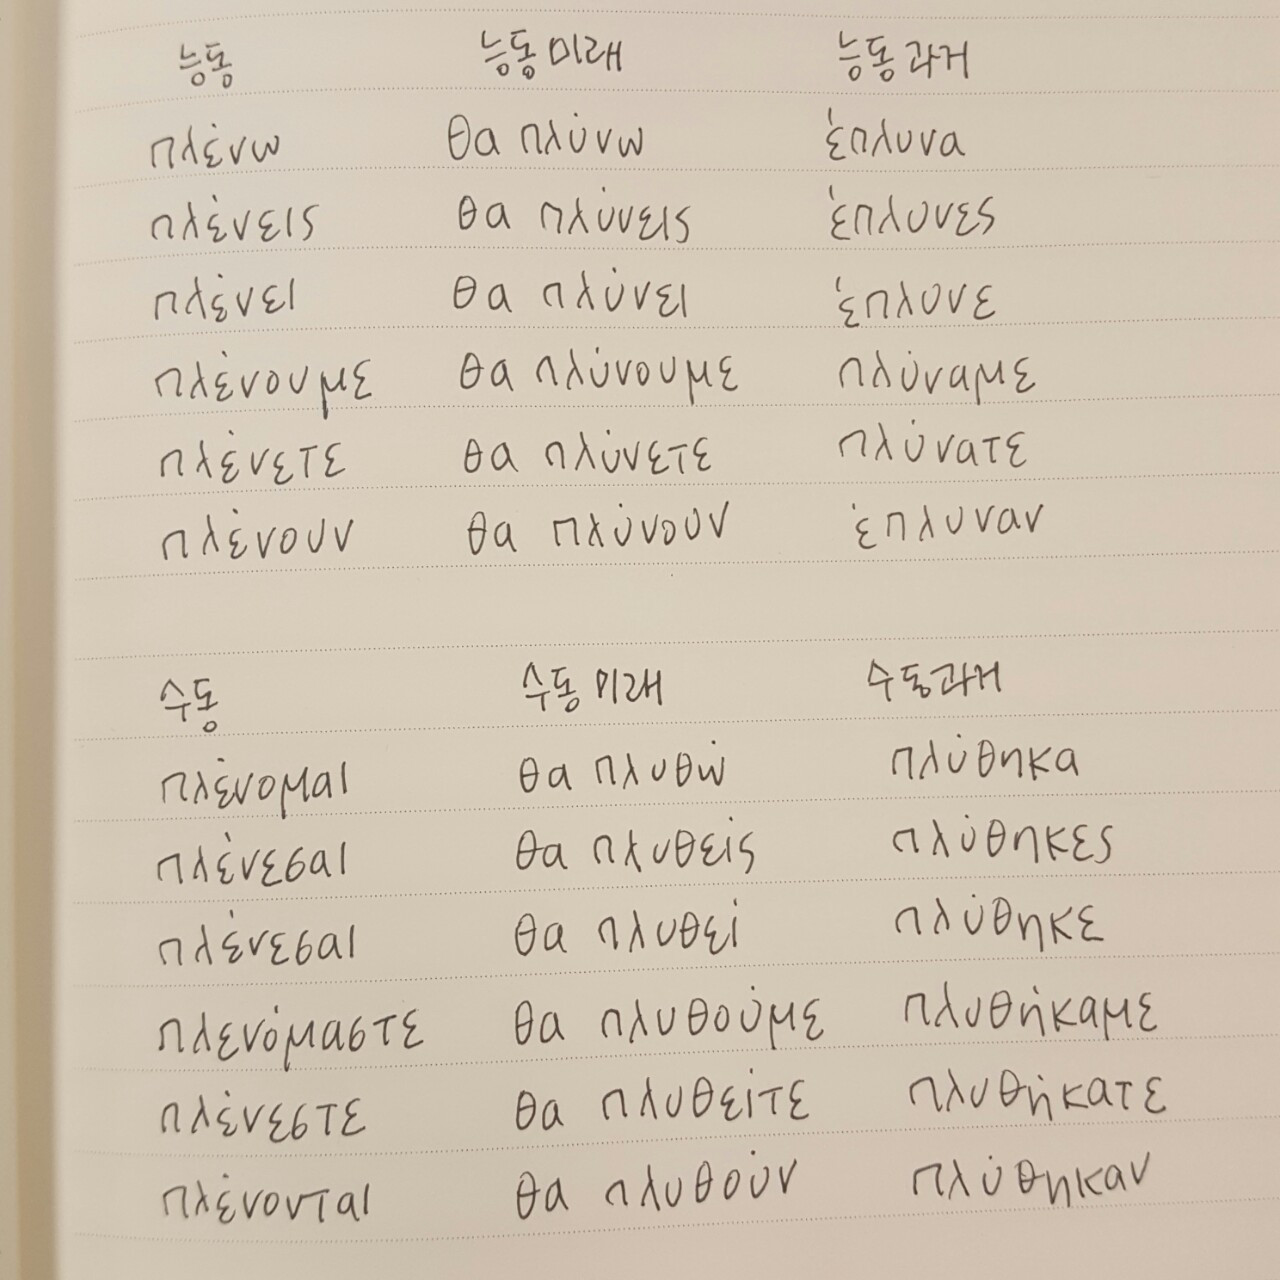 능동 능동 미래 능동 과거
πλένω θα πλύνω έπλυνα
πλένεις θα πλύνεις έπλυνες
πλένει θα πλύνει έπλυνε
πλένουμε θα πλύνουμε πλύναμε
πλένετε θα πλύνετε πλύνατε
πλένουν θα πλύνουν έπλυναν
수동 수동 미래 수동과거
πλένομαι θα πλυθώ πλύθηκα
πλένεσαι θα πλυθείς πλύθηκες
πλένεσαι θα πλυθεί πλύθηκε
πλενόμαστε θα πλυθούμε πλυθήκαμε
πλένεστε θα πλυθείτε πλυθήκατε
πλένονται θα πλυθούν πλύθηκαν